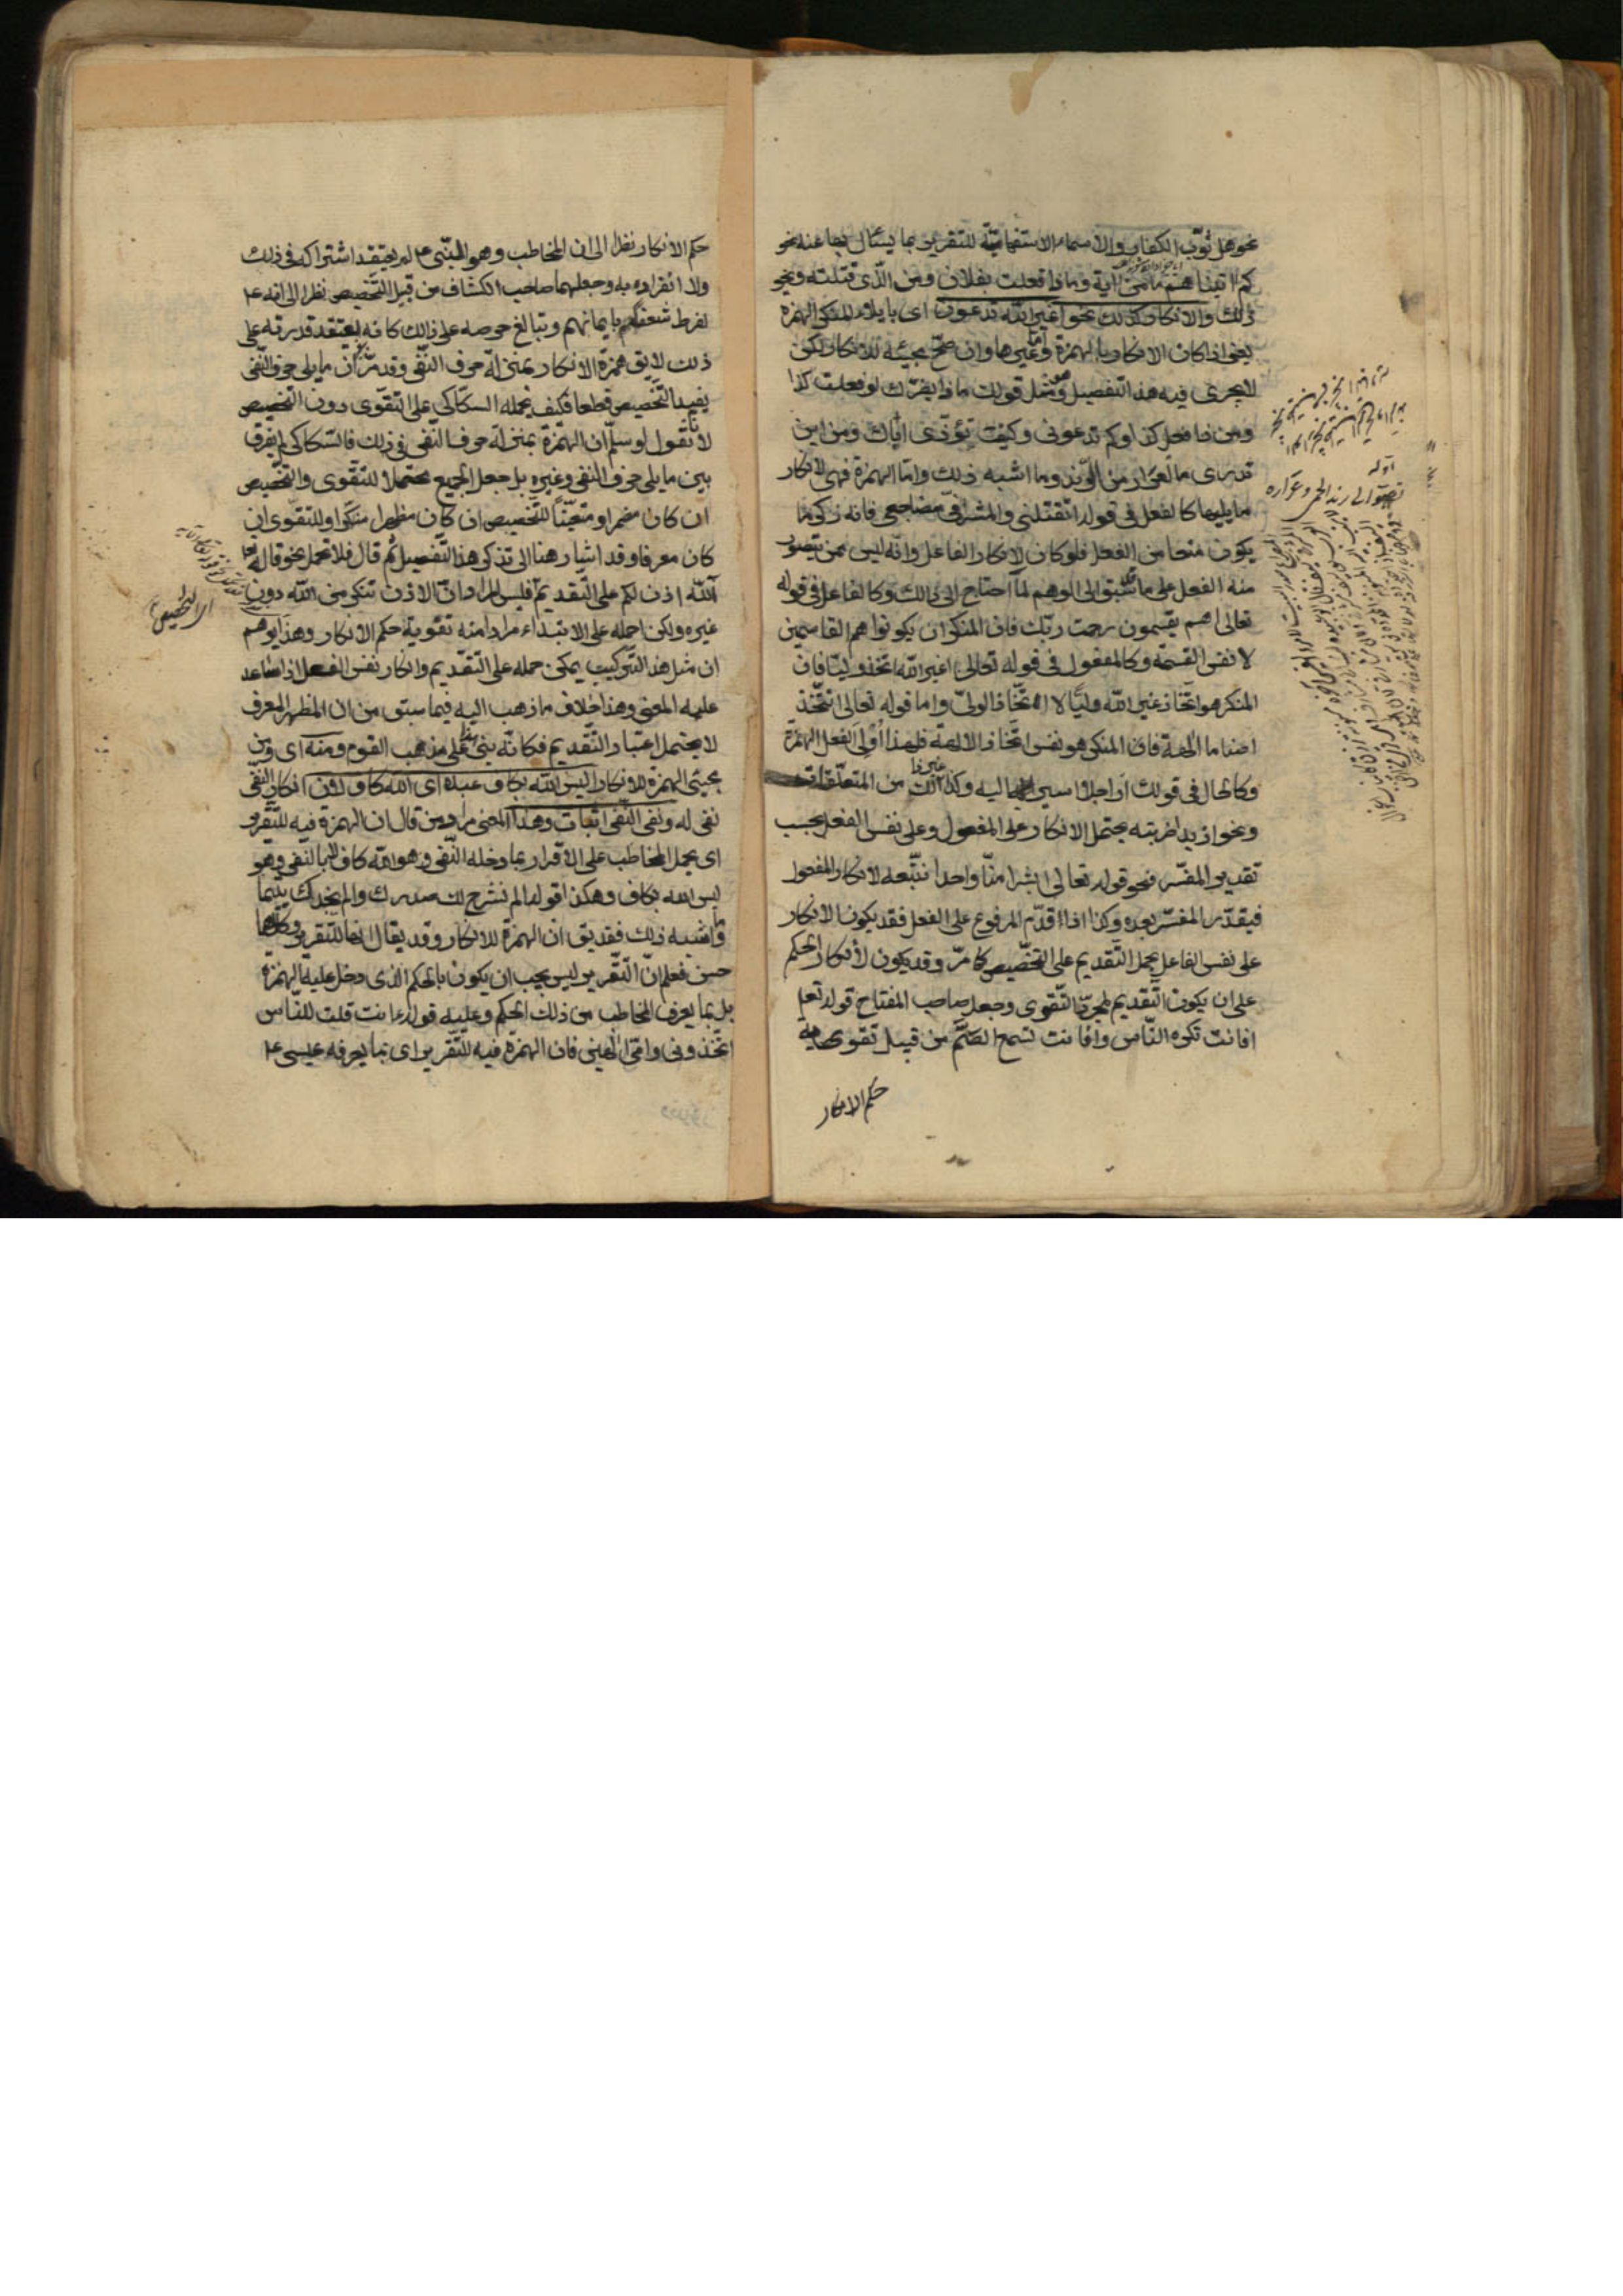 نحو هل ثوّب الكفار والاسماء الاستفهاميّة للتقرير بما يسئال بها عنه نحو
كم اتيناهم من اية وماذا فعلت بفلان ومن الّذى قتلته ونحو
ذلك والانكار كذلك نحو اغير الله تدعون اى بايلاء المنكر الهمزة
يعنى اذا كان الانكار بالهمزة وغيرها وان صحّ مجيئه للانكار لكن
لايجرى فيه هذا التفصيل مثل قولك ماذا يضرّك لو فعلت كذا
ومن ذا فعل كذا وكم تدعونى وكيف تؤذى اباك ومن اين
تدرى ما العرار من الرّند وما اشبه ذلك وامّا الهمزة فهى لانكار
مايليها كالفعل فى قوله اتقتلنى والمشرفىّ مضاجعى فانه ذكر ما
يكون منعا من الفعل فلو كان لانكار الفاعل وانّه ليس ممن يتصور
منه الفعل على ما سبق الى الوهم لمّا احتاج الى ذلك وكالفاعل فى قوله
تعالى اهم يقسمون رحمت ربّك فان المنكر ان يكونوا هم القاسمين
لا نفس القسمة وكالمفعول فى قوله تعالى اغير الله اتخذ وليّا فان
المنكر هو اتخاذ غير الله وليّا لا اتخاذ الولىّ واما قوله تعالى اتتخذ
اصناما الهة فان المنكر هو نفس اتخاذ الالهة فلهذا اولى الفعل الهمزة
وكالحال فى قولك اراجلا اسير اليه وكذا غير ذلك من المتعلّقات
ونحو ازيدا ضربته يحتمل الانكار على المفعول وعلى نفس الفعل بحسب
تقدير المفسّر فنحو قوله تعالى ابشرا منّا واحدا نتّبعه لانكار المفعول
فيقدّر المفسّر بعده وكذا اذا قدّم المرفوع على الفعل فقد يكون الانكار
على نفس الفاعل بحمل التقديم على التخصيص كما مرّ وقد يكون لانكار الحكم
على ان يكون التّقديم لمجرّد التّقوى وجعل صاحب المفتاح قوله تعالى
افانت تكره النّاس وافانت تسمع الصّمّ من قبيل تقوى
حكم الانكار
حكم الانكار نظرا الى ان المخاطب وهو النّبى ع لم يعتقد اشتراكه فى ذلك
ولا انفراده به وجعلهما صاحب الكشاف من قبيل التّخصيص نظرا الى انه ع
لفرط شغفه بايمانهم وتبالغ حرصه على ذلك كانه يعتقد قدرته على
ذلك لايق همزة الانكار بمنزلة حرف النّفى وقد مرّ ان مايلى حرف النّفى
يفيد التّخصيص قطعا فكيف يحمله السكّاكى على التقوّى دون التخصيص
لانّا نقول لو سلّم ان الهمزة بمنزلة حرف النّفى فى ذلك فالسّكاكى لم يفرق
بين مايلى حرف النفى وغيره بل جعل الجميع محتملا للتقوى والتخصيص
ان كان مضمرا ومتعيّنا للتخصيص ان كان مظهرا منكرا وللتقوّى ان
كان معرفا وقد اشار هنا الى تذكر هذا التّفصيل ثم قال فلا تحمل نحو قوله تعا
آلله اذن لكم على التقديم فليس المراد انّ الاذن تنكر من الله دون
غيره ولكن احمله على الابتداء مرادا منه تقوية حكم الانكار وهذا يوهم
ان مثل هذا التّركيب يمكن حمله على التّقديم وانكار نفس الفعل اذا ساعد
عليه المعنى وهذا خلاف ما ذهب اليه فيما سبق من ان المظهر المعرف
لايحتمل اعتبار التّقديم فكانّه بنى على مذهب القوم ومنه اى ومن
مجيئ الهمزة للانكار اليس الله بكاف عبده اى الله كاف لان انكار النّفى
نفى له ونفى النّفى اثبات وهذا المعنى مراد من قال ان الهمزة فيه للتّقرير
اى بحمل المخاطب على الاقرار بما دخله النّفى وهو الله كاف لا بالنّفى وهو
ليس الله بكاف وهكذا قوله الم نشرح لك صدرك والم يجدك يتيما
وما اشبه ذلك فقد يق ان الهمزة للانكار وقد يقال انها للتّقرير وكلاهما
حسن فعلم انّ التّقرير ليس يجب ان يكون بالحكم الذى دخل عليه الهمزة
بل بما يعرف المخاطب من ذلك الحكم وعليه قوله ءانت قلت للنّاس
اتّخذونى وامّى الهين فان الهمزة فيه للتّقرير اى بما يعرفه عيسى ع
اى التخصيص